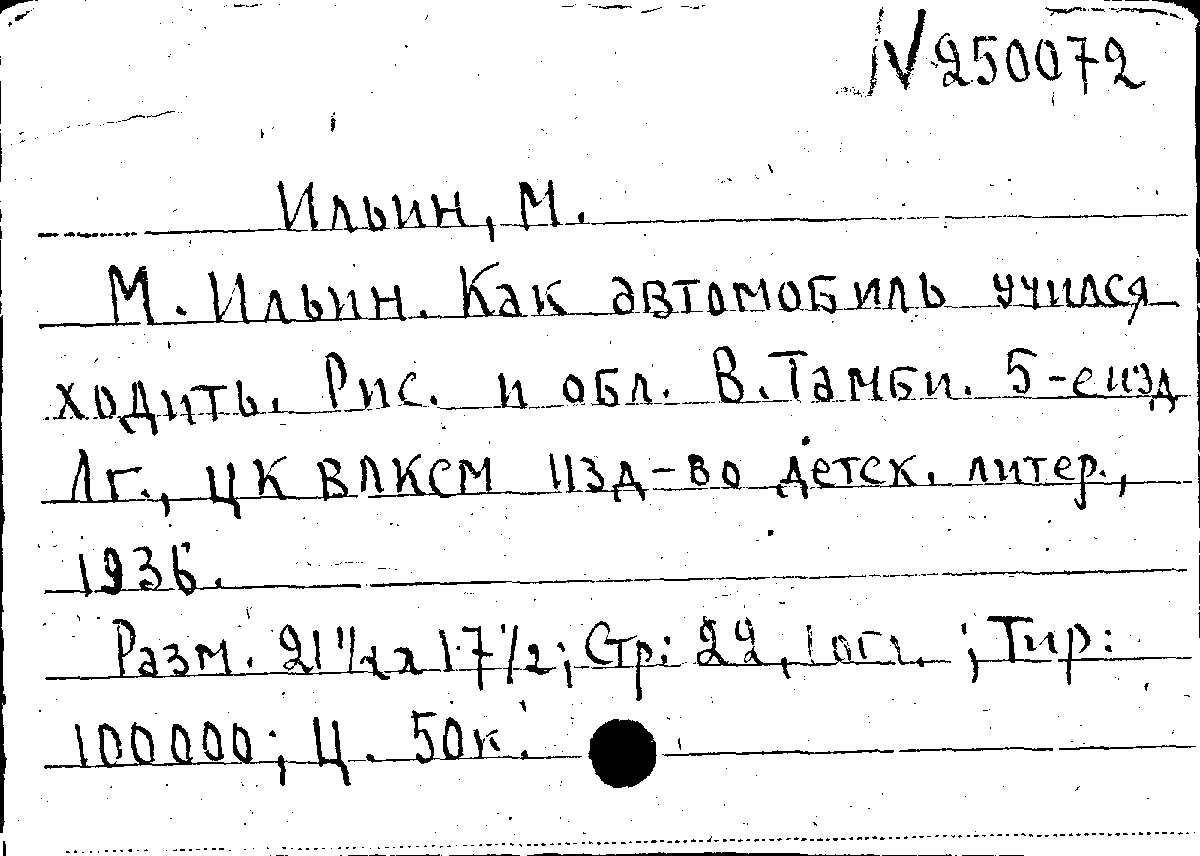 N 250072
Ильин, М.
М. Ильин. Как автомобиль учился
ходить. Рис. и обл. В. Тамби. 5-е изд
Лг., ЦК ВЛКСМ Изд-во детск. литер.,
1936.
Разм. 21 1/2 х 17 1/2; Стр: 22, 1 огл. ; Тир:
100000; Ц. 50к.